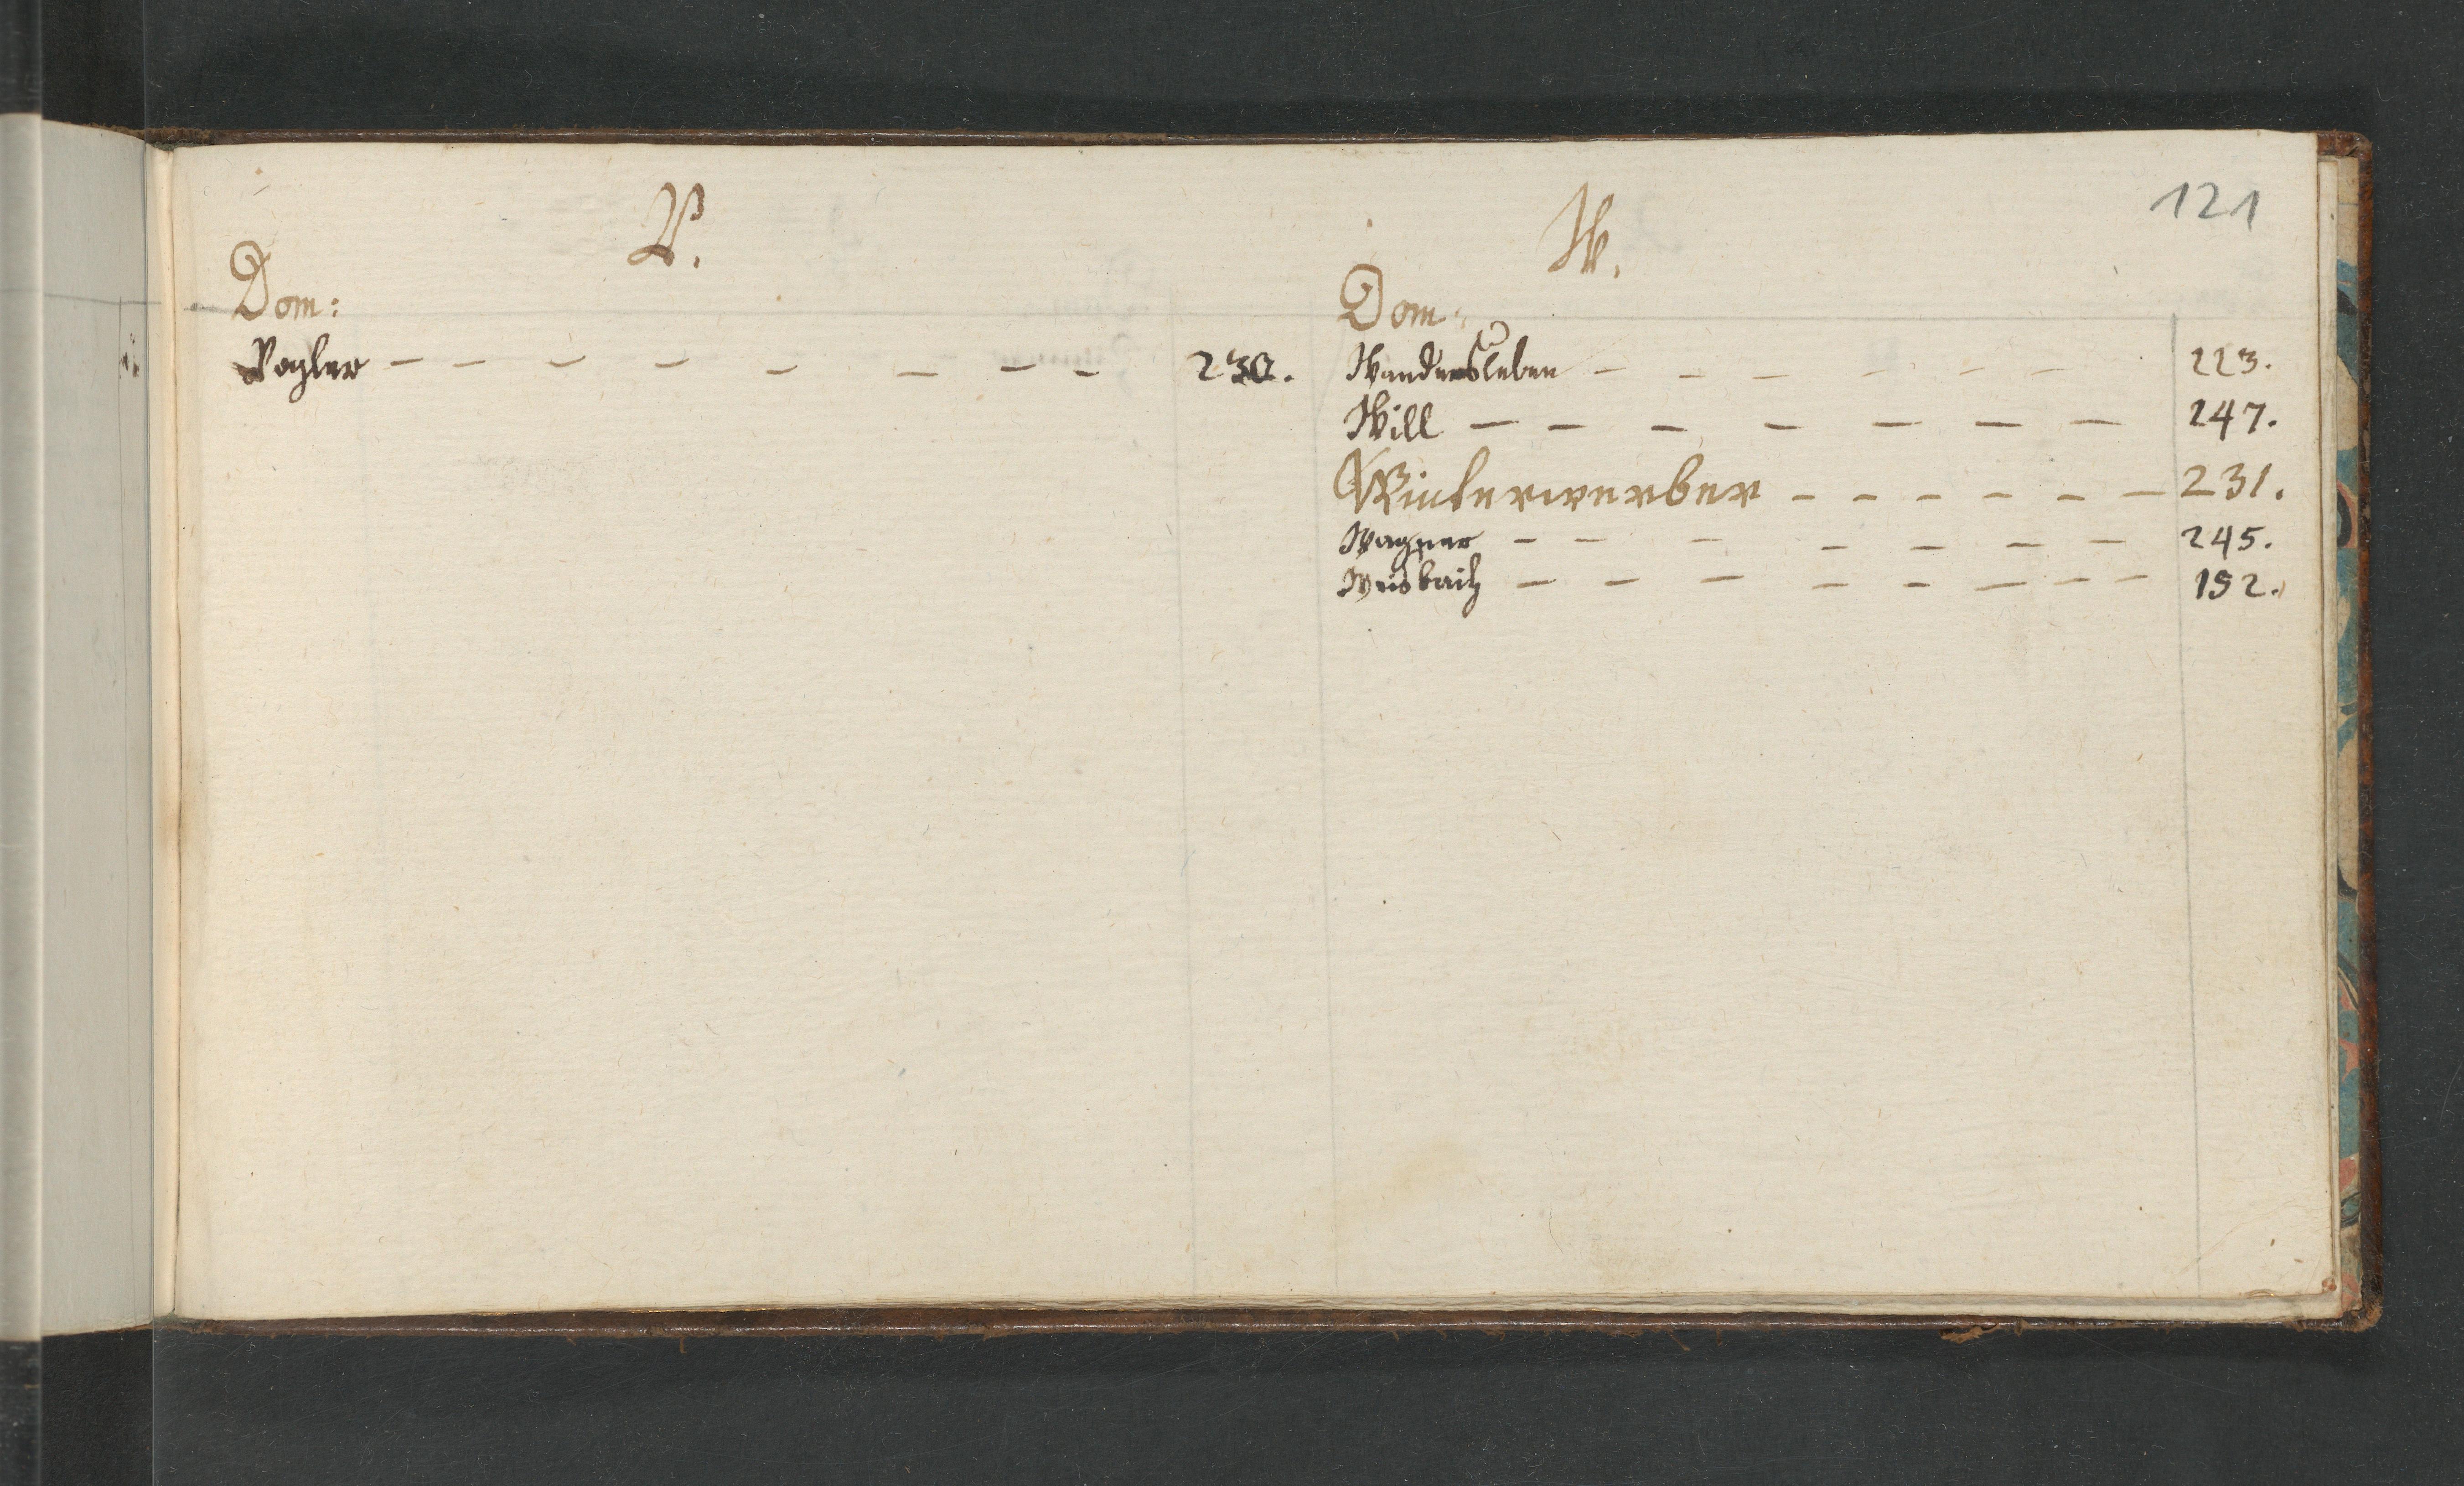 121
V.
Dom:
Vogler - - - - - - - - 230.
W.
Dom:
Wandersleben - - - - - - - 223.
Will - - - - - - - 247.
Winterwerber - - - - - - 231.
Wagner - - - - - - - 245.
Weisbach - - - - - - - - 152.